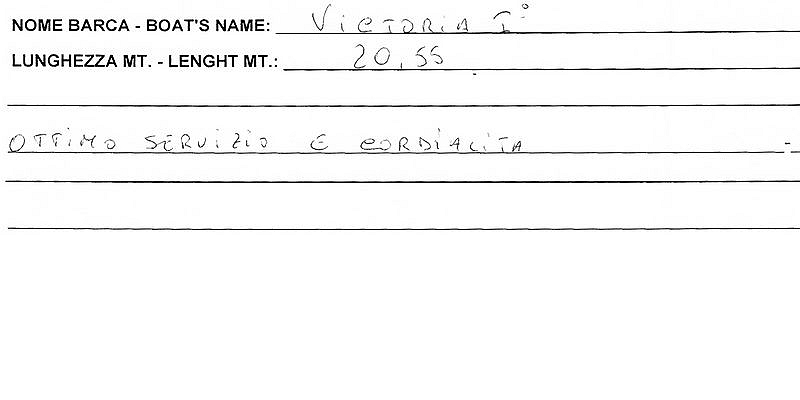 NOME BARCA - BOAT'S NAME: VICTORIA I°
LUNGHEZZA MT. - LENGHT MT.: 20,55
OTTIMO SERVIZIO E CORDIALITA -